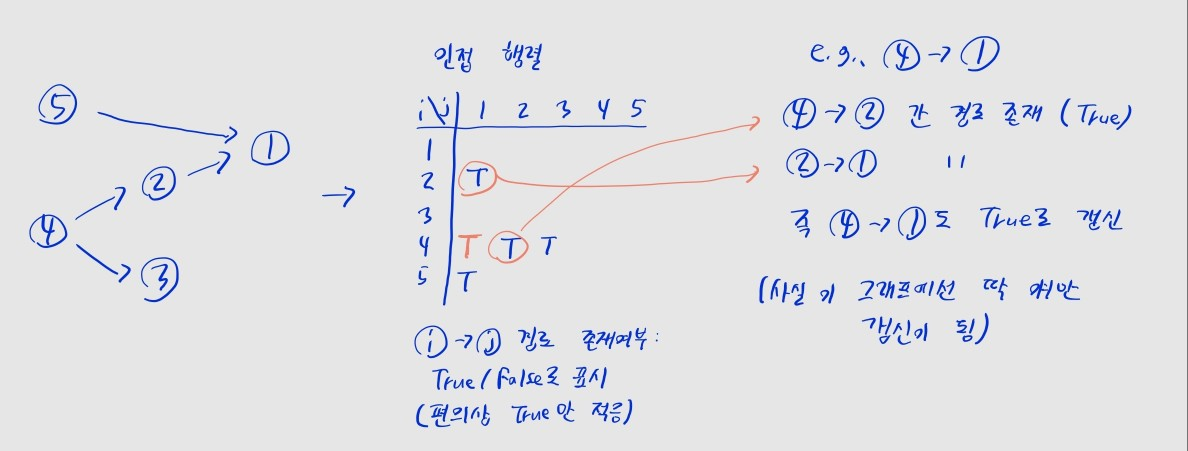 ⑤
①
②
④
③
→
인접 행렬
i\j 1 2 3 4 5
1
2 T
3
4 T T T
5 T
ⓘ→ⓙ 경로 존재여부:
True/False로 표시
(편의상 True만 적음)
e.g., ④→①
④→② 간 경로 존재 (True)
②→① "
즉 ④→①도 True로 갱신
(사실 이 그래프에선 딱 여기만
갱신이 됨)